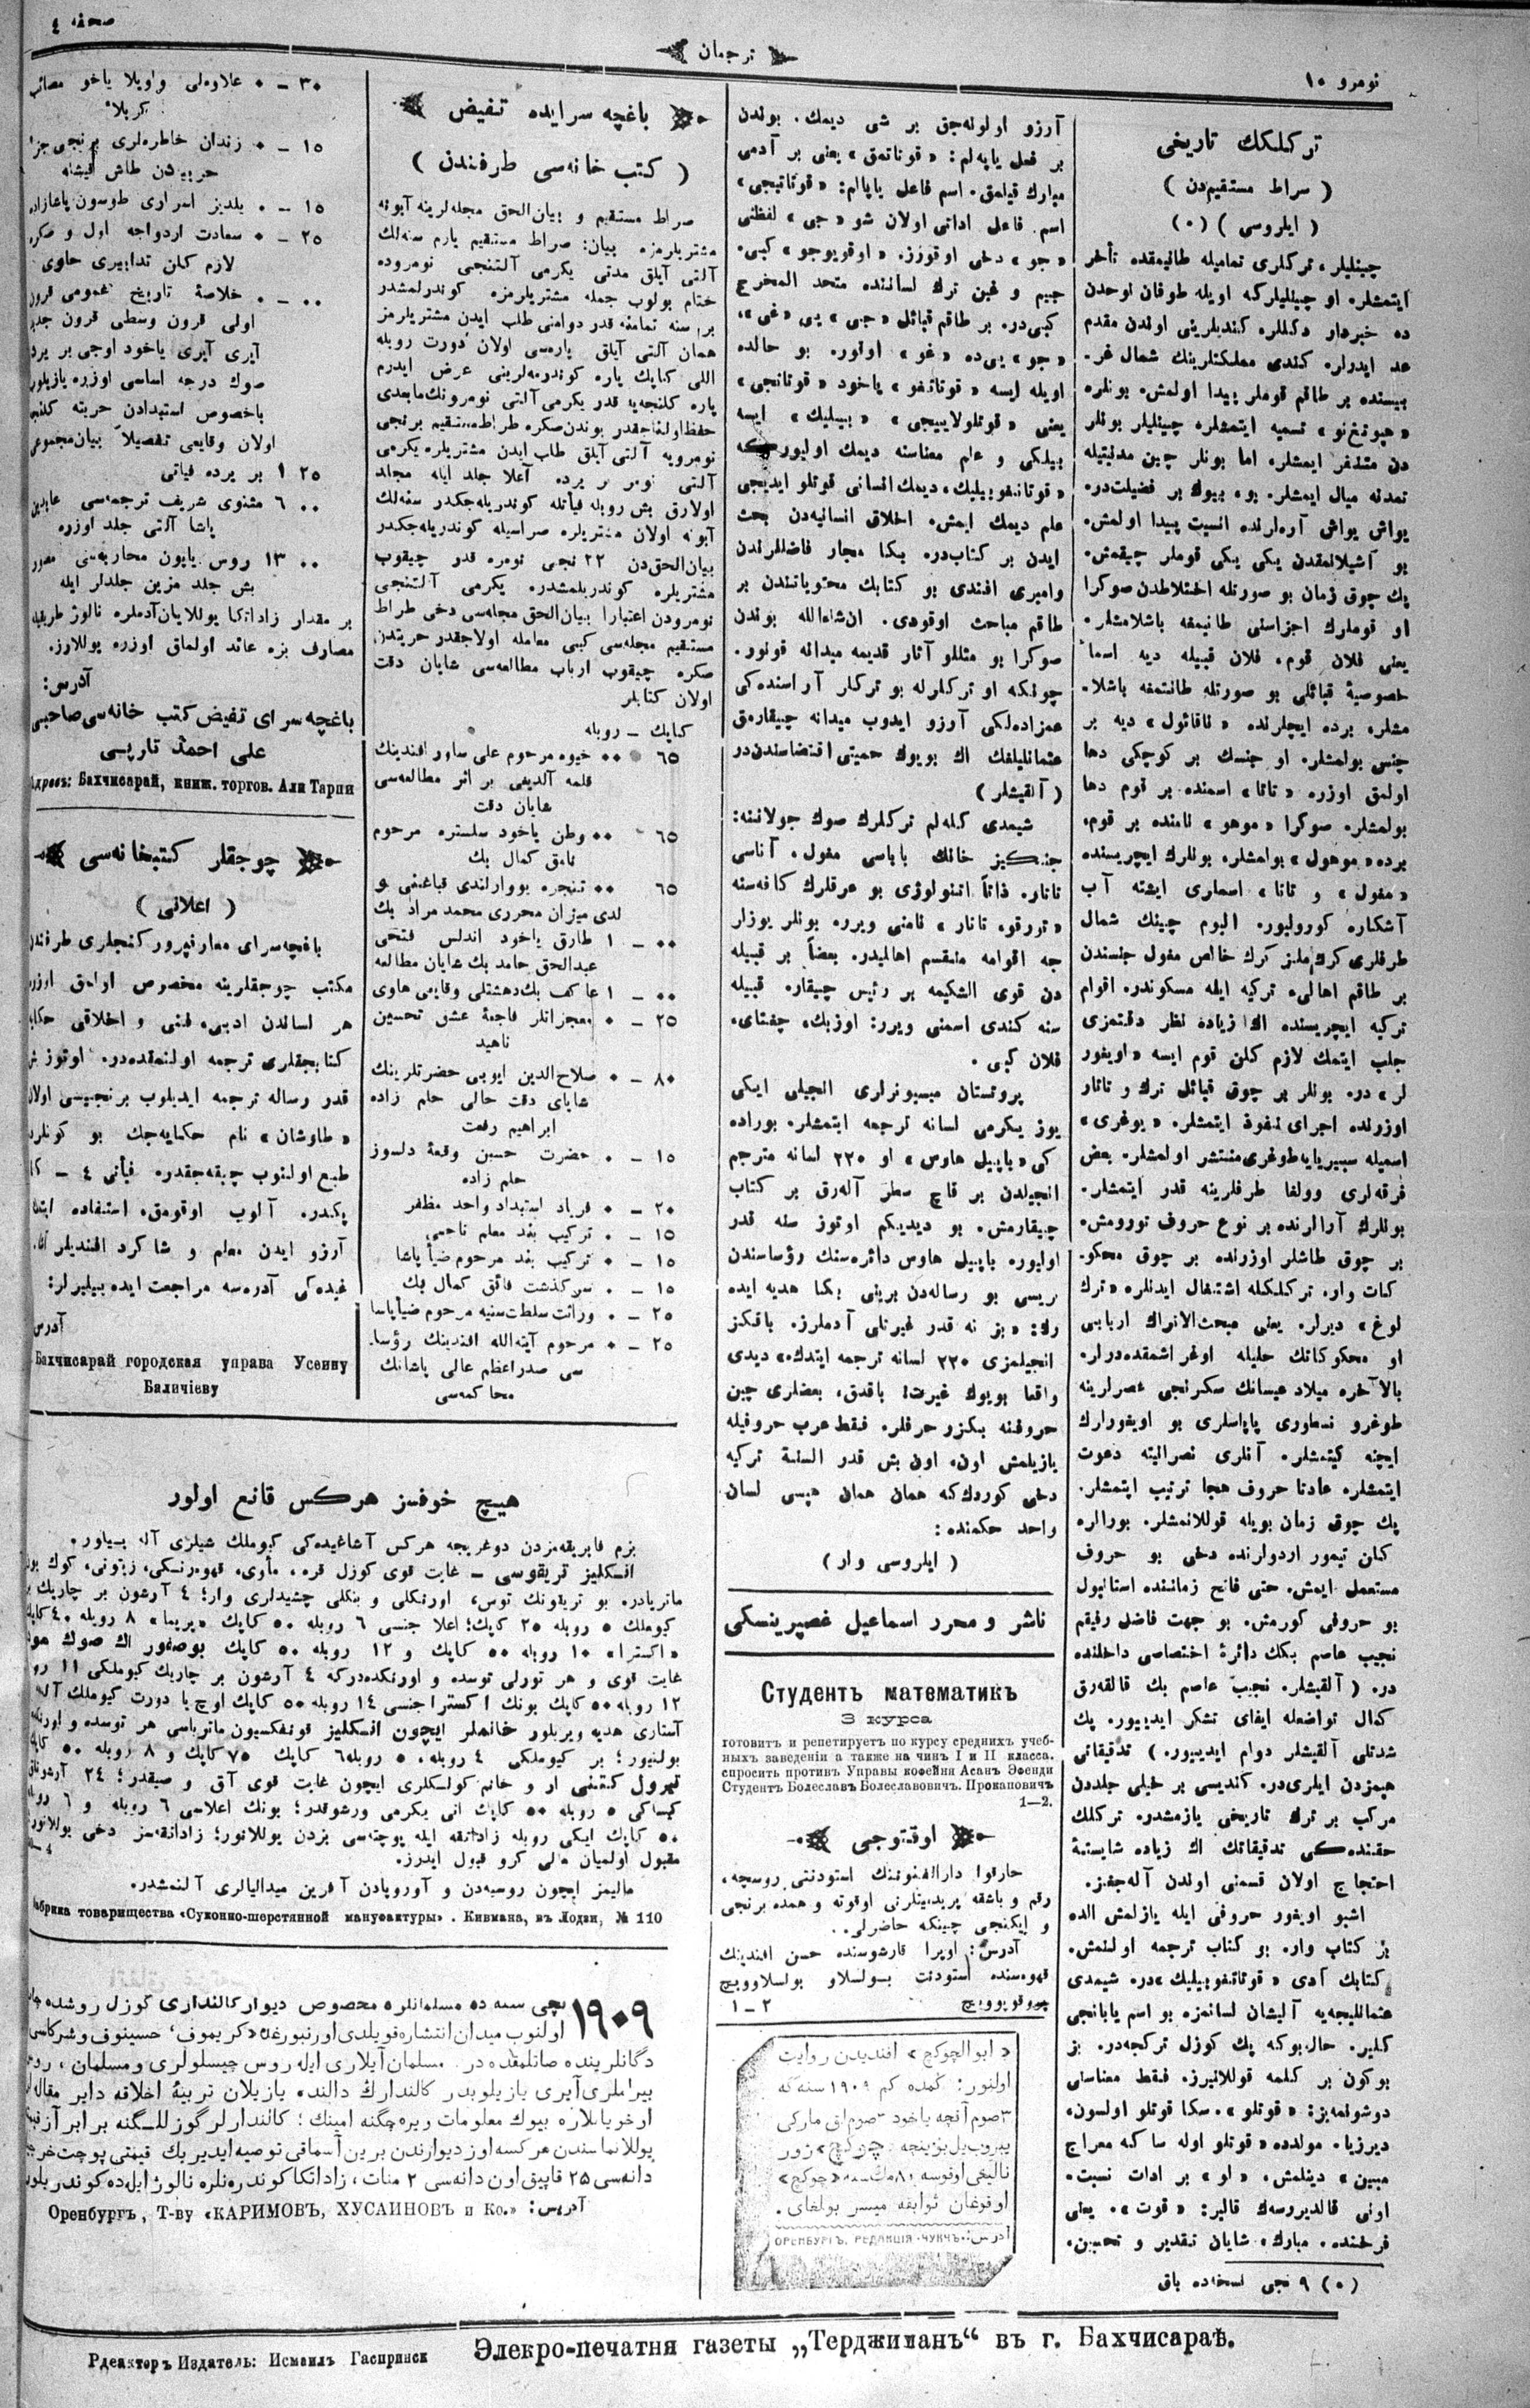 نومرو ١٠
ترجمان
صحفه ٤
تركلكك تاريخى
( سراط مستقيم‌دن )
( ايلروسى ) (٥)
چينليلر، تركلرى تماميله طانيمقده تأخر
ايتمشلر. او چينليلركه اويله طوفان نوحدن
ده خبردار دكللر. كنديلرينى اوندن مقدم
عد ايدرلر. كندى مملكتلرينك شمال غر‌-
بيسنده بر طاقم قوملر پيدا اولمش. بونلره
تسميه ايتمشلر. چينليلر بونلر
دن متنفر ايمشلر. اما بونلر چين مدنيتيله
تمدنه ميال ايمشلر. بو، بيوك بر فضيلت‌در.
يواش يواش آره‌لرنده انسيت پيدا اولمش.
پك چوق زمان بو صورتله اختلاطدن صوكرا
او قوملرك اجزاسنى طانيمغه باشلامشلر.
يعنى فلان قوم، فلان قبيله ديه اسماء
خصوصيهٔ قبائلى بو صورتله طانتمغه باشلا-
مشلر. برده ايچلرنده ديه بر
جنس بولمشلر. او جنسك بر كوچكى دها
اولمق اوزره «تاتا» اسمنده بر قوم دها
بولمشلر. صوكرا «موهو» نامنده بر قوم،
برده «موهول» بولمشلر. بونلرك ايچريسنده
«مغول» و «تاتا» اسملرى ايشته آپ
آشكاره كورولور. اليوم چينك شمال
طرفلرى كرك خالص مغول جنسندن
بر طاقم اهالى، تركيه ايله مسكوندر. اقوام
تركيه ايچريسنده اك زياده نظر دقتمزى
جلب ايتمك لازم كلن قوم ايسه «اويغور
لر» در. بونلر بر چوق قبائل ترك و تاتار
اوزرنده اجراى نفوذ ايتمشلر. «يوغرى»
اسميله سيبيريايه طوغرى منتشر اولمشلر. بعض
فرقه‌لرى وولغا طرفلرينه قدر ايتمشلر.
بونلرك آرالرنده بر نوع حروف تورومش.
بر چوق طاشلر اوزرنده بر چوق محكو-
كات وار. تركلكله اشتغال ايدنلره «ترك
لوغ» ديرلر. يعنى مبحث‌الاتراك اربابى
او محكوكاتك حليله اوغراشمقده‌درلر.
بالاخره ميلاد عيسانك سكزنجى عصرلرينه
طوغرو نسطورى پاپاسلرى بو اويغورلرك
ايچنه كيتمشلر. آنلرى نصرانيته دعوت
ايتمشلر. عادتا حروف هجا ترتيب ايتمشلر.
پك چوق زمان بويله قوللانمشلر. بورالره
كلن تيمور اردولرنده دخى بو حروف
مستعمل ايمش. حتى فاتح زماننده استانبول
بو حروفى كورمش. بو جهت فاضل رفيقم
نجيب عاصم بكك دائرهٔ اختصاصى داخلنده
در. ( آلقيشلر. نجيب عاصم بك قالقه‌رق
كمال تواضعله ايفاى تشكر ايديبور. پك
شدتلى آلقيشلر دوام ايدييور. ) تدقيقاتى
هپمزدن ايلرى‌در. كنديسى بر خيلى جلددن
مركب بر ترك تاريخى يازمشدر. تركلك
حقنده‌كى تدقيقاتك اك زياده شايستهٔ
احتجاج اولان قسمنى اوندن آله‌جغز.
اشبو اويغور حروفى ايله يازلمش الده
بر كتاب وار. بو كتاب ترجمه اولنمش.
كتابك آدى «قوتاتغوبيليك»در. شيمدى
عثمانليجه‌يه آليشان لسانمزه بو اسم يابانجى
كلير. حال‌بوكه پك كوزل تركجه‌در. بز
بوكون بر كلمه قوللانيرز. فقط معناسنى
دوشونمه‌يز: «قوتلو». سكا قوتلو اولسون،
ديرز يا. مولدده «قوتلو اوله سا كه معراج
مبين» دينلمش. «لو» بر ادات نسبت.
اونى قالديررسه‌ك قالير: «قوت». يعنى
فرخنده، مبارك، شايان تقدير و تحسين،
(٥) ٩ نجى نسخه‌ده باق
آرزو اولونه‌جق بر شى ديمك. بوندن
بر فعل ياپه‌لم: «قوتاتمق» يعنى بر آدمى
مبارك قيلمق. اسم فاعل ياپالم: «قوتاتيجى»
اسم. فاعل اداتى اولان شو «جى» لفظنى
«جو» دخى اوقورز. «اوقويوجو» كبى.
جيم و غين ترك لساننده متحد المخرج
كبى‌در. بر طاقم قبائل «جى» يى «غى»،
«جو» يى‌ده «غو» اوقور. بو حالده
اويله ايسه «قوتاتغو» ياخود «قوتاتجى»
يعنى «قوتلولاييجى» «بيليك» ايسه
بيلكى و علم معناسنه ديمك اوليور كه
«قوتاتغوبيليك» ديمك انسانى قوتلو ايديجى
علم ديمك ايمش. اخلاق انسانيه‌دن بحث
ايدن بر كتاب‌در. بكا مجار فاضللرندن
وامبرى افندى بو كتابك محتوياتندن بر
طاقم مباحث اوقودى. ان‌شاءالله بوندن
صوكرا بو مثللو آثار قديمه ميدانه قونور.
چونكه او تركلرله بو تركلر آراسنده‌كى
عمزاده‌لكى آرزو ايدوب ميدانه چيقارمق
عثمانليلغك اك بويوك حميتى اقتضاسندن‌در
( آلقيشلر )
شيمدى كله‌لم تركلرك صوك جولاننه:
جنكيز خانك باباسى مغول، آناسى
تاتار. ذاتاً اتنولوژى بو عرقلرك كافه‌سنه
«تورقو، تاتار» نامنى ويرر. بونلر يوزلر
جه اقوامه منقسم اهاليدر. بعضاً بر قبيله
دن قوى الشكيمه بر رئيس چيقار. قبيله
سنه كندى اسمنى ويرر: اوزبك، چغتاى،
فلان كبى.
پروتستان ميسيونرلرى انجيلى ايكى
يوز يكرمى لسانه ترجمه ايتمشلر. بوراده
كى «بايبل هاوس» او ٢٢٠ لسانه مترجم
انجيلدن بر قاچ سطر آله‌رق بر كتاب
چيقارمش. بو ديديكم اوتوز سنه قدر
اوليور. بايبل هاوس دائره‌سنك رؤساسندن
بريسى بو رساله‌دن برينى بكا هديه ايده
رك: «بز نه قدر غيرتلى آدملرز. باقكز
انجيلمزى ٢٢٠ لسانه ترجمه ايتدك» ديدى
واقعا بويوك غيرت! باقدق، بعضلرى چين
حروفنه بكزر حرفلر. فقط عرب حروفيله
يازيلمش اون، اون بش قدر السنهٔ تركيه
دخى كوردك‌كه همان همان هپسى لسان
واحد حكمنده:
( ايلروسى وار )
ناشر و محرر اسماعيل غصپرينسكى
Студентъ математикъ
3 курса
готовитъ и репетируетъ по курсу среднихъ учеб-
ныхъ заведеній а также на чинъ I и II класса.
спросить противъ Управы кофейня Асанъ Эфенди
Студентъ Болеславъ Болеславовичъ. Прокаповичъ
1—2.
اوقتوجى
حارقوا دارالفنوننك استودنتى روسچه،
و ايكنجى چينكه حاضرلى..
آدرس: اوپرا قارشوسنده حسن افندينك
قهوه‌سنده استودنت بولسلاو بولسلاوويچ
٢ – ١
«ابوالچوكچ» افنديدن روايت
اولنور: كمده كم ١٩٠٩ سنه كه
ОРЕНБУРГЪ. РЕДАКЦІЯ «ЧУКЧЪ» آدرس:
باغچه سرايده تنفيض
( كتب خانه‌سى طرفندن )
صراط مستقيم و بيان‌الحق مجله‌لرينه آبونه
مشتريلرمزه بيان: صراط مستقيم يارم سنه‌لك
آلتى آيلق مدتى يكرمى آلتنجى نومروده
ختام بولوب جمله مشتريلرمزه كوندرلمشدر
بر سنه تمامنه قدر دوامنى طلب ايدن مشتريلرمز
همان آلتى آيلق پاره‌سى اولان دورت روبله
اللى كپك پاره كوندرمه‌لرينى عرض ايدرم
پاره كلنجه‌يه قدر يكرمى آلتى نومرونك مابعدى
حفظ اولنه‌جقدر بوندن صكره صراط مستقيم برنجى
نومرويه آلتى آيلق طلب ايدن مشتريلره يكرمى
آلتى نومر بر يرده آعلا جلد ايله مجلد
اولارق بش روبله فيأتله كوندريله‌جكدر سنه‌لك
آبونه اولان مشتريلره صراسيله كوندريله‌جكدر
بيان‌الحق‌دن ٢٢ نجى نومره قدر چيقوب
مشتريلره كوندرلمشدر. يكرمى آلتنجى
نومرودن اعتبارا بيان‌الحق مجله‌سى دخى صراط
مستقيم مجله‌سى كبى معامله اولاجقدر حريتدن
صكره چيقوب ارباب مطالعه‌سى شايان دقت
اولان كتابلر
كپك – روبله
٦٥ ٠٠ خيوه مرحوم على ساور افندينك
قلمه آلديغى بر اثر مطالعه‌سى
شايان دقت
٦٥ ٠٠ وطن ياخود سلستره مرحوم
نامق كمال بك
لدى ميزان محررى محمد مراد بك
٠٠ – ١ طارق ياخود اندلس فتحى
عبدالحق حامد بك شايان مطالعه
٠٠ – ١ عاكف بك دهشتلى وقايعى حاوى
٢٥ – ٠ معجزانلر فاجعهٔ عشق تحسين
ناهيد
٨٠ – ٠ صلاح‌الدين ايوبى حضرتلرينك
شاياى دقت حالى حلم زاده
ابراهيم رفعت
١٥ – ٠ حضرت حسين وقعهٔ دلسوز
حلم زاده
٢٠ – ٠ فرياد استبداد واحد مظفر
١٥ – ٠ تركيب بند معلم ناجى
١٥ – ٠ تركيب بند مرحوم ضيا پاشا
١٥ – ٠ سركذشت فائق كمال بك
٢٥ – ٠ وراثت سلطنت سنيه مرحوم ضيا پاشا
٢٥ – ٠ مرحوم آيه‌الله افندينك رؤيا-
سى صدراعظم عالى پاشانك
محاكمه‌سى
٣٠ – ٠ علاوه‌لى واويلا ياخو مصائب
كربلا
١٥ – ٠ زندان خاطره‌لرى برنجى جزء
حربيه‌دن طاش قيشله
١٥ – ٠ يلديز اسرارى طوسون پاشازاده
٢٥ – ٠ سعادت ازدواجه اول و صكره
لازم كلن تدابيرى حاوى
٠٠ – ٠ خلاصهٔ تاريخ عمومى قرون
اولى قرون وسطى قرون جديد
آيرى آيرى ياخود اوچى بر يرده
صوك درجه اساسى اوزره يازيلوب
باخصوص استبدادن حريته كلنجه
اولان وقايعى تفصيلاً بيان مجموعى
٢٥ ١ بر يرده فياتى
٠٠ ٦ مثنوى شريف ترجمه‌سى عابدين
پاشا آلتى جلد اوزره
٠٠ ١٣ روس ياپون محاربه‌سى مصور
بش جلد مزين جلدلر ايله
بر مقدار زاداتكا يوللايان آدملره نالوژ طريقيله
مصارف بزه عائد اولماق اوزره يوللارز.
آدرس:
باغچه سراى تفيض كتب خانه‌سى صاحبى
على احمد تارپى
Адресъ: Бахчисарай, книж. торгов. Али Тарпи
چوجقلر كتبخانه‌سى
( اعلانى )
باغچه‌سراى معارفپرور كنجلرى طرفندن
مكتب چوجقلرينه مخصوص اولمق اوزره
هر لساندن ادبى، فنى و اخلاقى حكايه
كتابجقلرى ترجمه اولنمقده‌در. اوتوز بش
قدر رساله ترجمه ايديلوب برنجيسى اولان
«طاوشان» نام حكايه‌جك بو كونلرده
طبع اولنوب چيقه‌جقدر. فيأتى ٤ – كا
پكدر. آلوب اوقومق، استفاده ايتمك
آرزو ايدن معلم و شاكرد افنديلر آشا-
غيده‌كى آدره‌سه مراجعت ايده بيليرلر:
آدرس
Бахчисарай городская управа Усеину
Баличіеву
هيچ خوفسز هركس قانع اولور
بزم فابريقه‌مزدن دوغريجه هركس آشاغيده‌كى كيوملك شيلرى آله بيلور.
انكليز تريقوسى – غايت قوى كوزل قره، ماوى، قهوه‌رنكى، زيتونى، كوك بويا
ماتريادر. بو تريقونك توس، اورنكلى و بنكلى چشيدلرى وار؛ ٤ آرشون بر چاريك بر
كيوملك ٥ روبله ٢٥ كاپك؛ اعلا جنسى ٦ روبله ٥٠ كاپك «پريما» ٨ روبله ٤٠ كاپك
«اكسترا» ١٠ روبله ٥٥ كاپك و ١٢ روبله ٥٠ كاپك بوصفور اك صوك مودا
غايت قوى و هر تورلى توسده و اورنكده‌دركه ٤ آرشون بر چاريك كيوملكى ١١ رو
١٢ روبله ٥٠ كاپك بونك اكسترا جنسى ١٤ روبله ٥٠ كاپك اوچ يا دورت كيوملك آلانه
آستارى هديه ويريلور خانملر ايچون انكليز قونفكسيون ماترياسى هر توسده و اورنكده
بولنيور؛ بر كيوملكى ٤ روبله، ٥ روبله ٦ كاپك ٧٥ كاپك و ٨ روبله ٥٠ كاپك
تيرول كتينى او و خانم كولمكلرى ايچون غايت قوى آق و صيقدر؛ ٢٤ آرشونلق
كيساكى ٥ روبله ٥٠ كاپك انى يكرمى ورشوقدر؛ بونك اعلاسى ٦ روبله و ٦ روبله
٥٠ كاپك ايكى روبله زاداتقه ايله پوچته‌سى بزدن يوللانور؛ زاداتقه‌سز دخى يوللانور؛
مقبول اولميان مالى كرو قبول ايدرز.
ماليمز ايچون روسيه‌دن و آوروپادن آفرين ميداليالرى آلنمشدر.
Фабрика товарищества «Суконно-шерстянной мануфактуры». Кивмана, въ Лодзи, № 110
١٩٠٩ نچى سنه ده مسلمانلره مخصوص ديوار كالندارى كوزل روشده چاپ
اولنوب ميدان انتشاره قويلدى اورنبورغده «كريموف، حسينوف و شركاسى
دگانلرينده صاتلمقده‌در. مسلمان آيلارى ايله روس چيسلولرى و مسلمان، روس
بيراملرى آيرى يازيلوبدر كالندارك دالنده يازيلان تربيهٔ اخلاقه داير مقاله‌لر
دانه‌سى ٢٥ قاپيق اون دانه‌سى ٢ منات، زاداتكا كوندره‌نلره نالوژ ايله‌ده كوندريلور
آدريس: Оренбургъ, Т-ву «КАРИМОВЪ, ХУСАИНОВЪ и Ко.»
Рдеакторъ Издатель: Исмаилъ Гаспринск
Элекро-печатня газеты „Терджиманъ“ въ г. Бахчисараѣ.